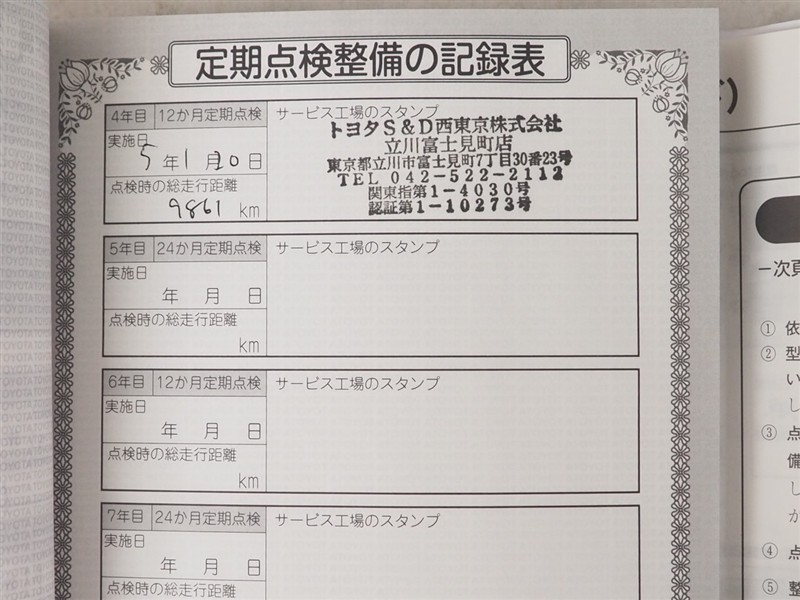 定期点検整備の記録表
4年目 12か月定期点検 サービス工場のスタンプ
実施日
5年1月20日
点検時の総走行距離
9861 km
トヨタS&D西東京株式会社
立川富士見町店
東京都立川市富士見町7丁目30番23号
TEL 042-522-2112
関東指第1-4030号
認証第1-10273号
5年目 24か月定期点検 サービス工場のスタンプ
実施日
年 月 日
点検時の総走行距離
km
6年目 12か月定期点検 サービス工場のスタンプ
実施日
年 月 日
点検時の総走行距離
km
7年目 24か月定期点検 サービス工場のスタンプ
実施日
年 月 日
点検時の総走行距離
ー次頁
① 依
② 型
い
し
③ 点
備
し
か
④ 点
⑤ 整